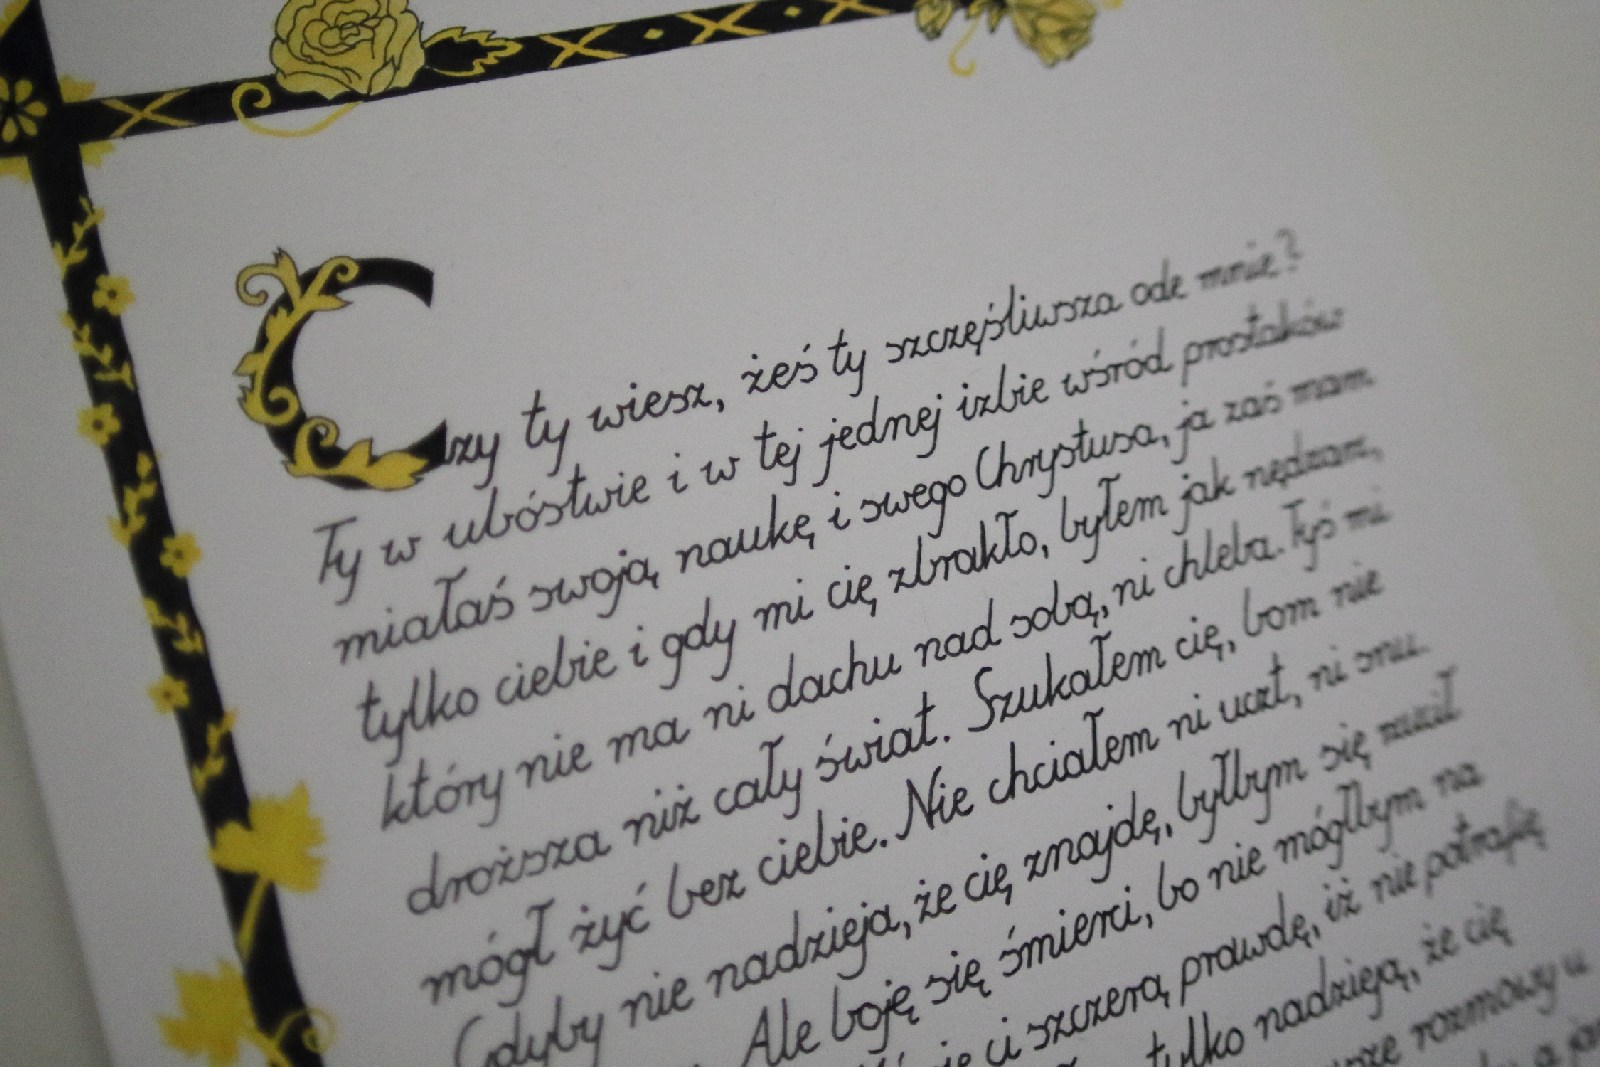 Czy ty wiesz, żeś ty szczęśliwsza ode mnie?
Ty w ubóstwie i w tej jednej izbie wśród prostaków
miałaś swoją naukę i swego Chrystusa, ja zaś mam
tylko ciebie i gdy mi cię zbrakło, byłem jak nędzarz,
który nie ma ni dachu nad sobą, ni chleba. Tyś mi
droższa niż cały świat. Szukałem cię, bom nie
mógł żyć bez ciebie. Nie chciałem ni uczt, ni snu.
Gdyby nie nadzieja, że cię znajdę, byłbym się rzucił
Ale boję się śmierci, bo nie mógłbym na
ci szczerą prawdę, iż nie potrafię
tylko nadzieją, że cię
rozmowy u
a